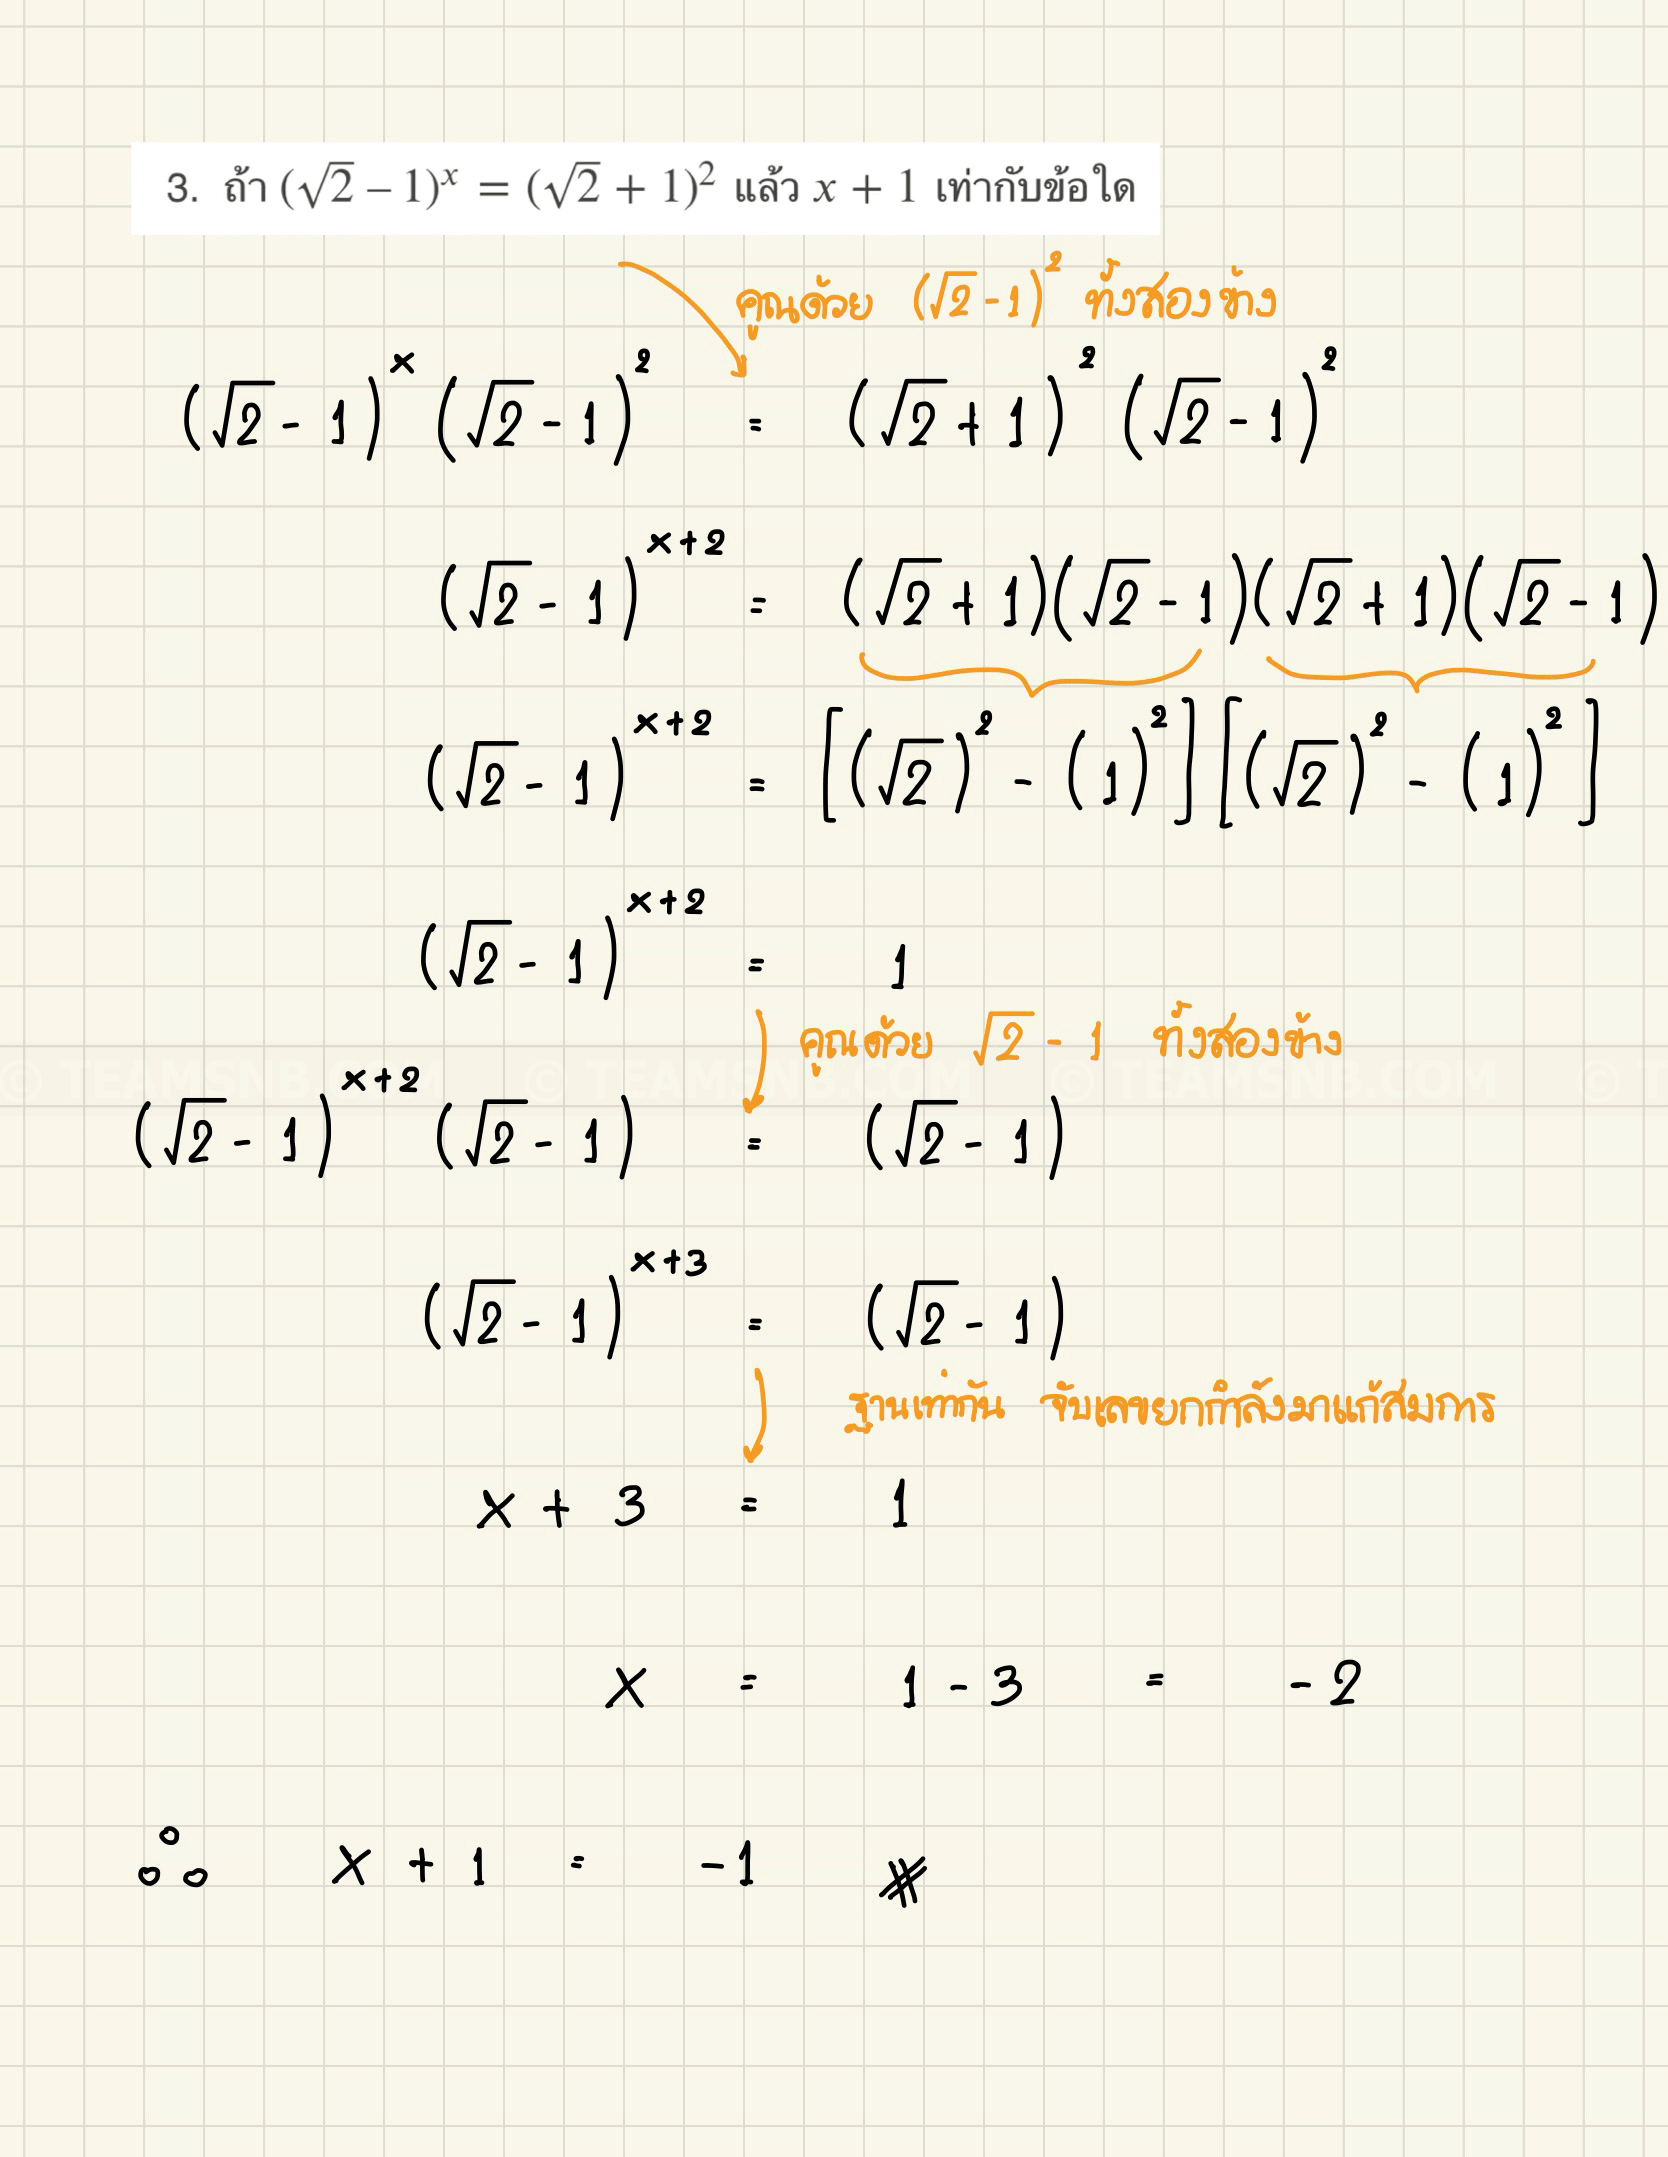 3. ถ้า (√2 – 1)^x = (√2 + 1)^2 แล้ว x + 1 เท่ากับข้อใด
คูณด้วย (√2 - 1)^2 ทั้งสองข้าง
(√2 - 1)^x (√2 - 1)^2 = (√2 + 1)^2 (√2 - 1)^2
(√2 - 1)^x+2 = (√2 + 1)(√2 - 1)(√2 + 1)(√2 - 1)
(√2 - 1)^x+2 = [(√2)^2 - (1)^2] [(√2)^2 - (1)^2]
(√2 - 1)^x+2 = 1
คูณด้วย √2 - 1 ทั้งสองข้าง
© TEAMSNB.COM © TEAMSNB.COM © TEAMSNB.COM © T
(√2 - 1)^x+2 (√2 - 1) = (√2 - 1)
(√2 - 1)^x+3 = (√2 - 1)
ฐานเท่ากัน จับเลขยกกำลังมาแก้สมการ
x + 3 = 1
x = 1 - 3 = - 2
∴ x + 1 = -1 #